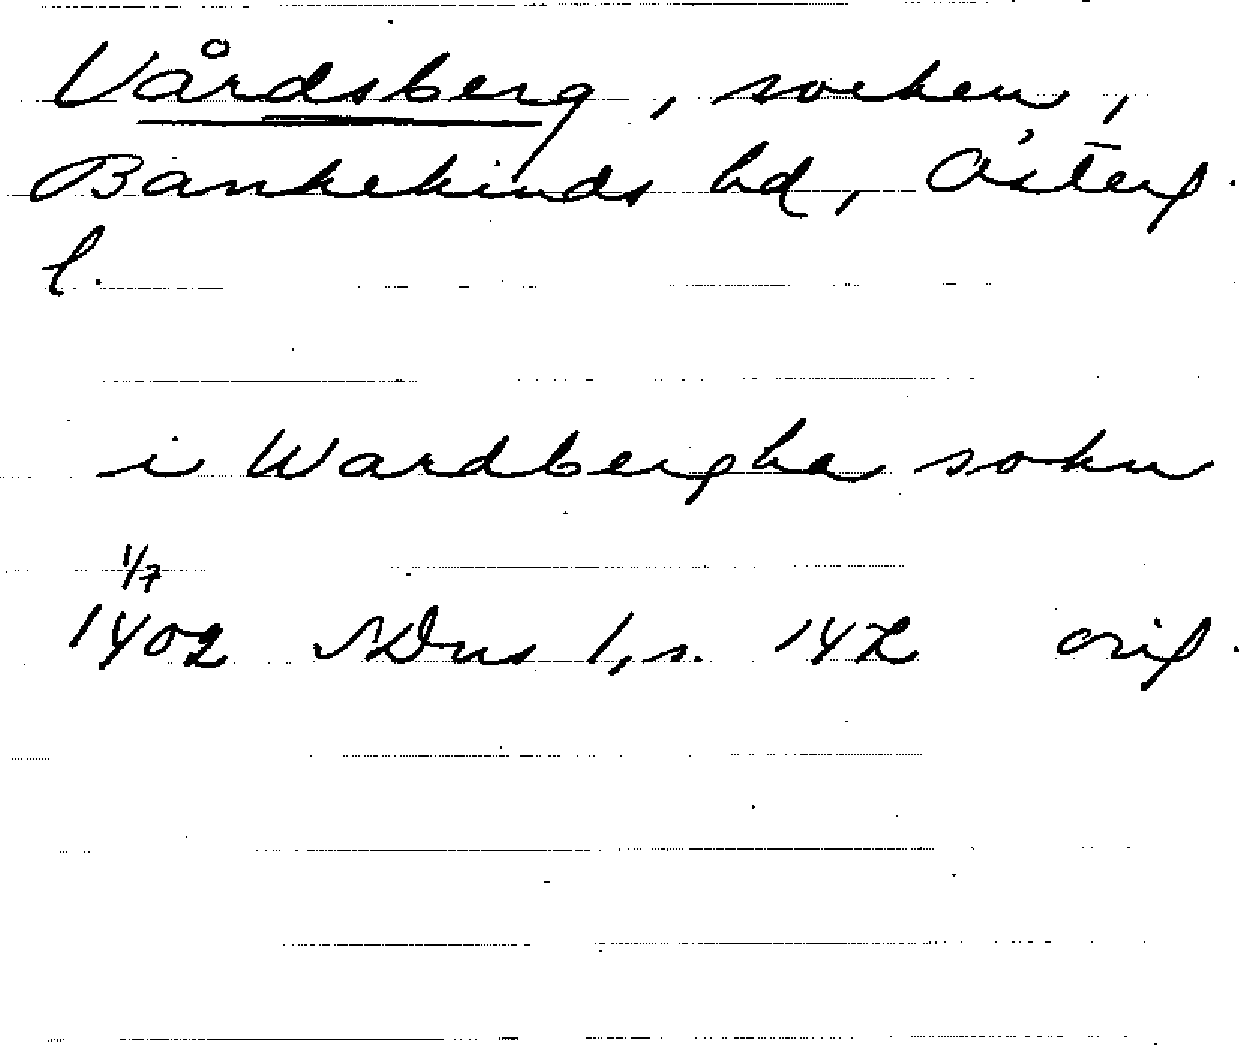 Vårdsberg, socken,
Bankekinds hd, Österg.
l.
i Wardbergha sokn
1/7
1402 SDns 1, s. 142 orig.